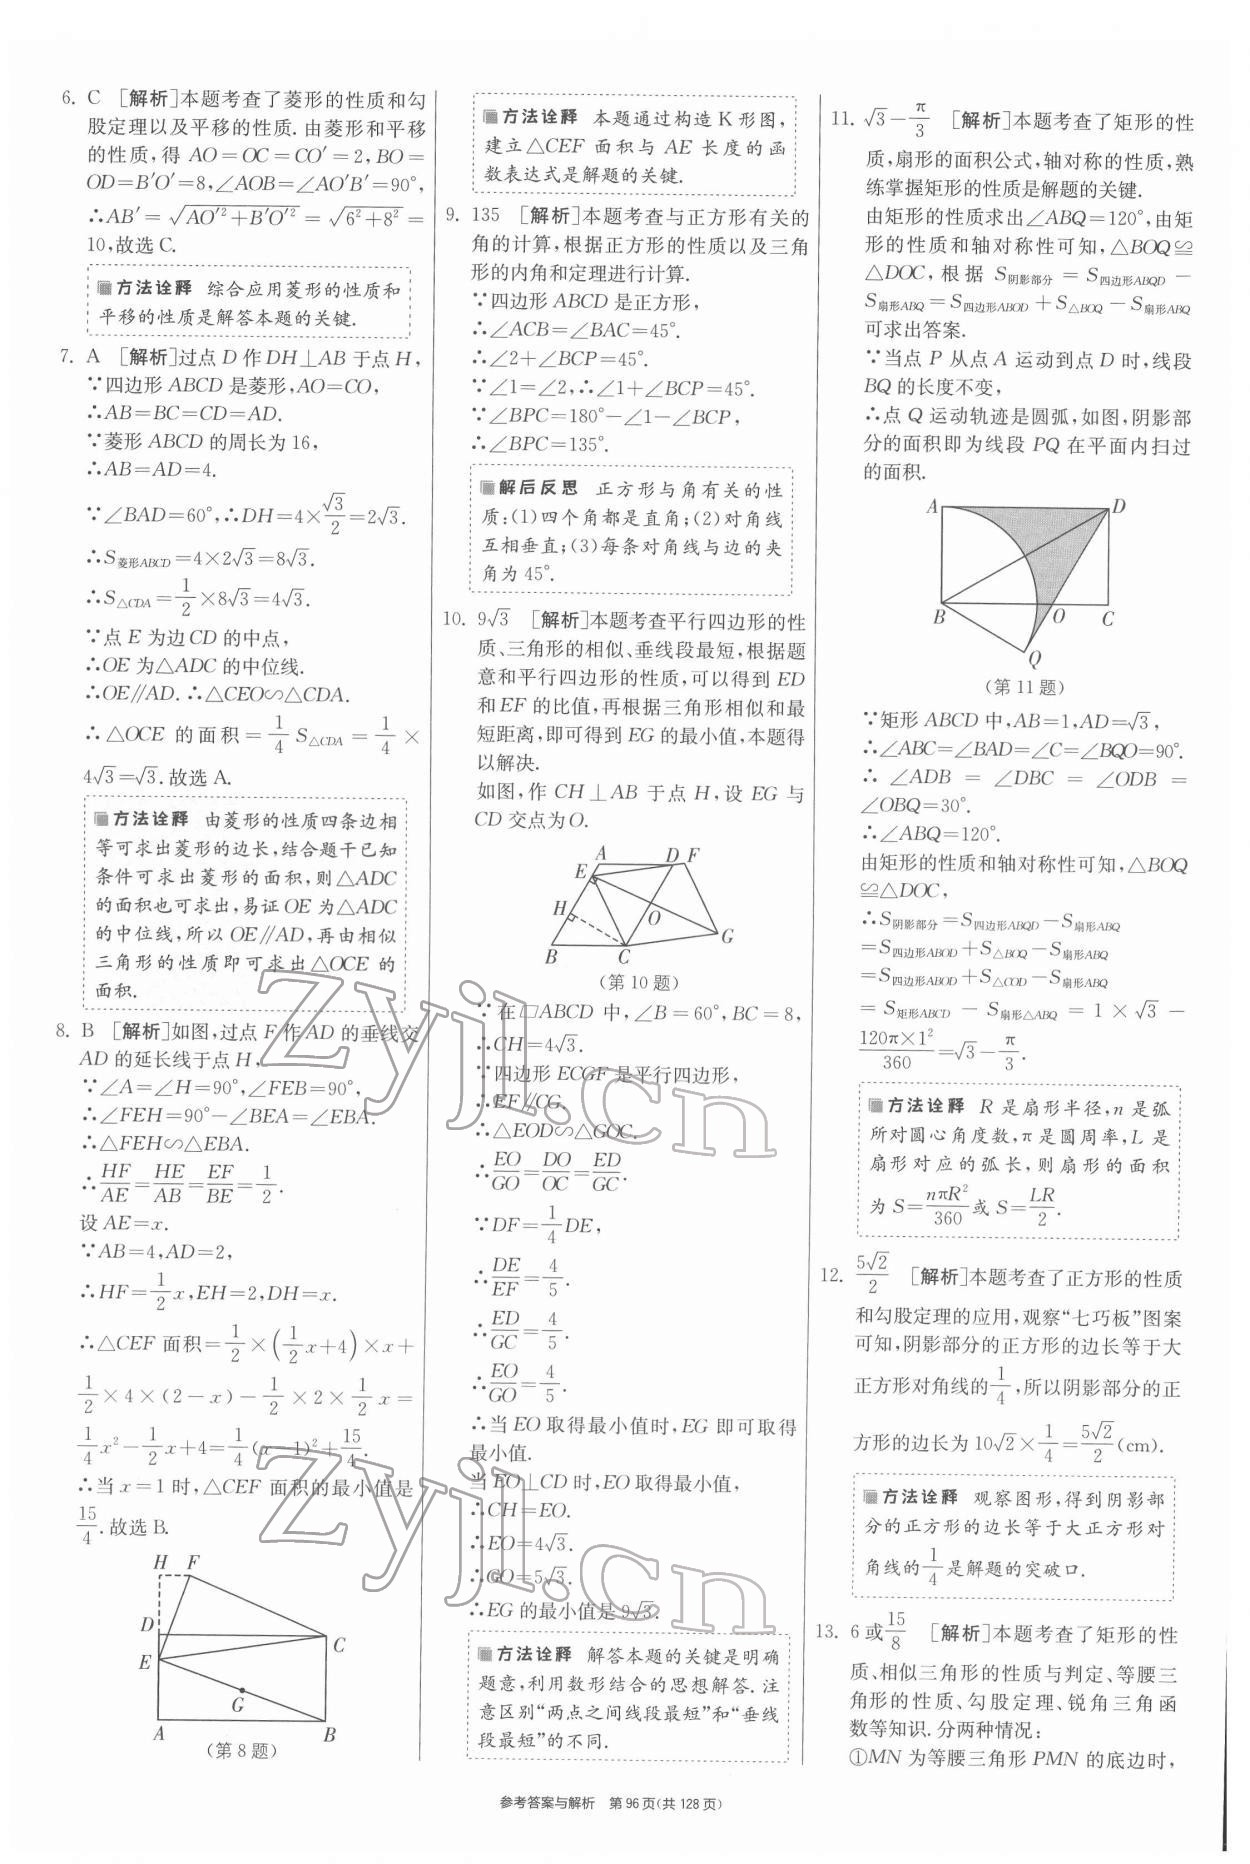 6. C [解析]本题考查了菱形的性质和勾
股定理以及平移的性质. 由菱形和平移
的性质,得 AO=OC=CO′=2,BO=
OD=B′O′=8,∠AOB=∠AO′B′=90°,
∴AB′=√(AO′²+B′O′²)=√(6²+8²)=
10,故选 C.
方法诠释 综合应用菱形的性质和
平移的性质是解答本题的关键.
7. A [解析]过点 D 作 DH⊥AB 于点 H,
∵四边形 ABCD 是菱形,AO=CO,
∴AB=BC=CD=AD.
∵菱形 ABCD 的周长为 16,
∴AB=AD=4.
∵∠BAD=60°,∴DH=4×√3/2=2√3.
∴S菱形ABCD=4×2√3=8√3.
∴S△CDA=1/2×8√3=4√3.
∵点 E 为边 CD 的中点,
∴OE 为△ADC 的中位线.
∴OE∥AD.∴△CEO∽△CDA.
∴△OCE 的面积=1/4 S△CDA=1/4×
4√3=√3.故选 A.
方法诠释 由菱形的性质四条边相
等可求出菱形的边长,结合题干已知
条件可求出菱形的面积,则△ADC
的面积也可求出,易证 OE 为△ADC
的中位线,所以 OE∥AD,再由相似
三角形的性质即可求出△OCE 的
面积.
8. B [解析]如图,过点 F 作 AD 的垂线交
AD 的延长线于点 H,
∵∠A=∠H=90°,∠FEB=90°,
∴∠FEH=90°-∠BEA=∠EBA.
∴△FEH∽△EBA.
∴HF/AE=HE/AB=EF/BE=1/2.
设 AE=x.
∵AB=4,AD=2,
∴HF=1/2x,EH=2,DH=x.
∴△CEF 面积=1/2×(1/2x+4)×x+
1/2×4×(2-x)-1/2×2×1/2x=
1/4x²-1/2x+4=1/4(x-1)²+15/4.
∴当 x=1 时,△CEF 面积的最小值是
15/4.故选 B.
H F
D
C
E
G
A
B
(第 8 题)
方法诠释 本题通过构造 K 形图,
建立△CEF 面积与 AE 长度的函
数表达式是解题的关键.
9. 135 [解析]本题考查与正方形有关的
角的计算,根据正方形的性质以及三角
形的内角和定理进行计算.
∵四边形 ABCD 是正方形,
∴∠ACB=∠BAC=45°.
∴∠2+∠BCP=45°.
∵∠1=∠2,∴∠1+∠BCP=45°.
∵∠BPC=180°-∠1-∠BCP,
∴∠BPC=135°.
解后反思 正方形与角有关的性
质:(1)四个角都是直角;(2)对角线
互相垂直;(3)每条对角线与边的夹
角为 45°.
10. 9√3 [解析]本题考查平行四边形的性
质、三角形的相似、垂线段最短,根据题
意和平行四边形的性质,可以得到 ED
和 EF 的比值,再根据三角形相似和最
短距离,即可得到 EG 的最小值,本题得
以解决.
如图,作 CH⊥AB 于点 H,设 EG 与
CD 交点为 O.
A D F
E
H
O
G
B C
(第 10 题)
∵在▱ABCD 中,∠B=60°,BC=8,
∴CH=4√3.
∵四边形 ECGF 是平行四边形,
∴EF∥CG.
∴△EOD∽△GOC.
∴EO/GO=DO/OC=ED/GC.
∵DF=1/4DE,
∴DE/EF=4/5.
∴ED/GC=4/5.
∴EO/GO=4/5.
∴当 EO 取得最小值时,EG 即可取得
最小值.
当 EO⊥CD 时,EO 取得最小值,
∴CH=EO.
∴EO=4√3.
∴GO=5√3.
∴EG 的最小值是 9√3.
方法诠释 解答本题的关键是明确
题意,利用数形结合的思想解答.注
意区别“两点之间线段最短”和“垂线
段最短”的不同.
11. √3-π/3 [解析]本题考查了矩形的性
质,扇形的面积公式,轴对称的性质,熟
练掌握矩形的性质是解题的关键.
由矩形的性质求出∠ABQ=120°,由矩
形的性质和轴对称性可知,△BOQ≌
△DOC,根据 S阴影部分=S四边形ABQD-
S扇形ABQ=S四边形ABOD+S△BOQ-S扇形ABQ
可求出答案.
∵当点 P 从点 A 运动到点 D 时,线段
BQ 的长度不变,
∴点 Q 运动轨迹是圆弧,如图,阴影部
分的面积即为线段 PQ 在平面内扫过
的面积.
A D
B O C
Q
(第 11 题)
∵矩形 ABCD 中,AB=1,AD=√3,
∴∠ABC=∠BAD=∠C=∠BQO=90°.
∴∠ADB=∠DBC=∠ODB=
∠OBQ=30°.
∴∠ABQ=120°.
由矩形的性质和轴对称性可知,△BOQ
≌△DOC,
∴S阴影部分=S四边形ABQD-S扇形ABQ
=S四边形ABOD+S△BOQ-S扇形ABQ
=S四边形ABOD+S△COD-S扇形ABQ
=S矩形ABCD-S扇形△ABQ=1×√3-
120π×1²/360=√3-π/3.
方法诠释 R 是扇形半径,n 是弧
所对圆心角度数,π 是圆周率,L 是
扇形对应的弧长,则扇形的面积
为 S=nπR²/360或 S=LR/2.
12. 5√2/2 [解析]本题考查了正方形的性质
和勾股定理的应用,观察“七巧板”图案
可知,阴影部分的正方形的边长等于大
正方形对角线的1/4,所以阴影部分的正
方形的边长为 10√2×1/4=5√2/2(cm).
方法诠释 观察图形,得到阴影部
分的正方形的边长等于大正方形对
角线的1/4是解题的突破口.
13. 6 或15/8 [解析]本题考查了矩形的性
质、相似三角形的性质与判定、等腰三
角形的性质、勾股定理、锐角三角函
数等知识.分两种情况:
①MN 为等腰三角形 PMN 的底边时,
zyjl.cn
zyjl.cn
参考答案与解析 第 96 页(共 128 页)